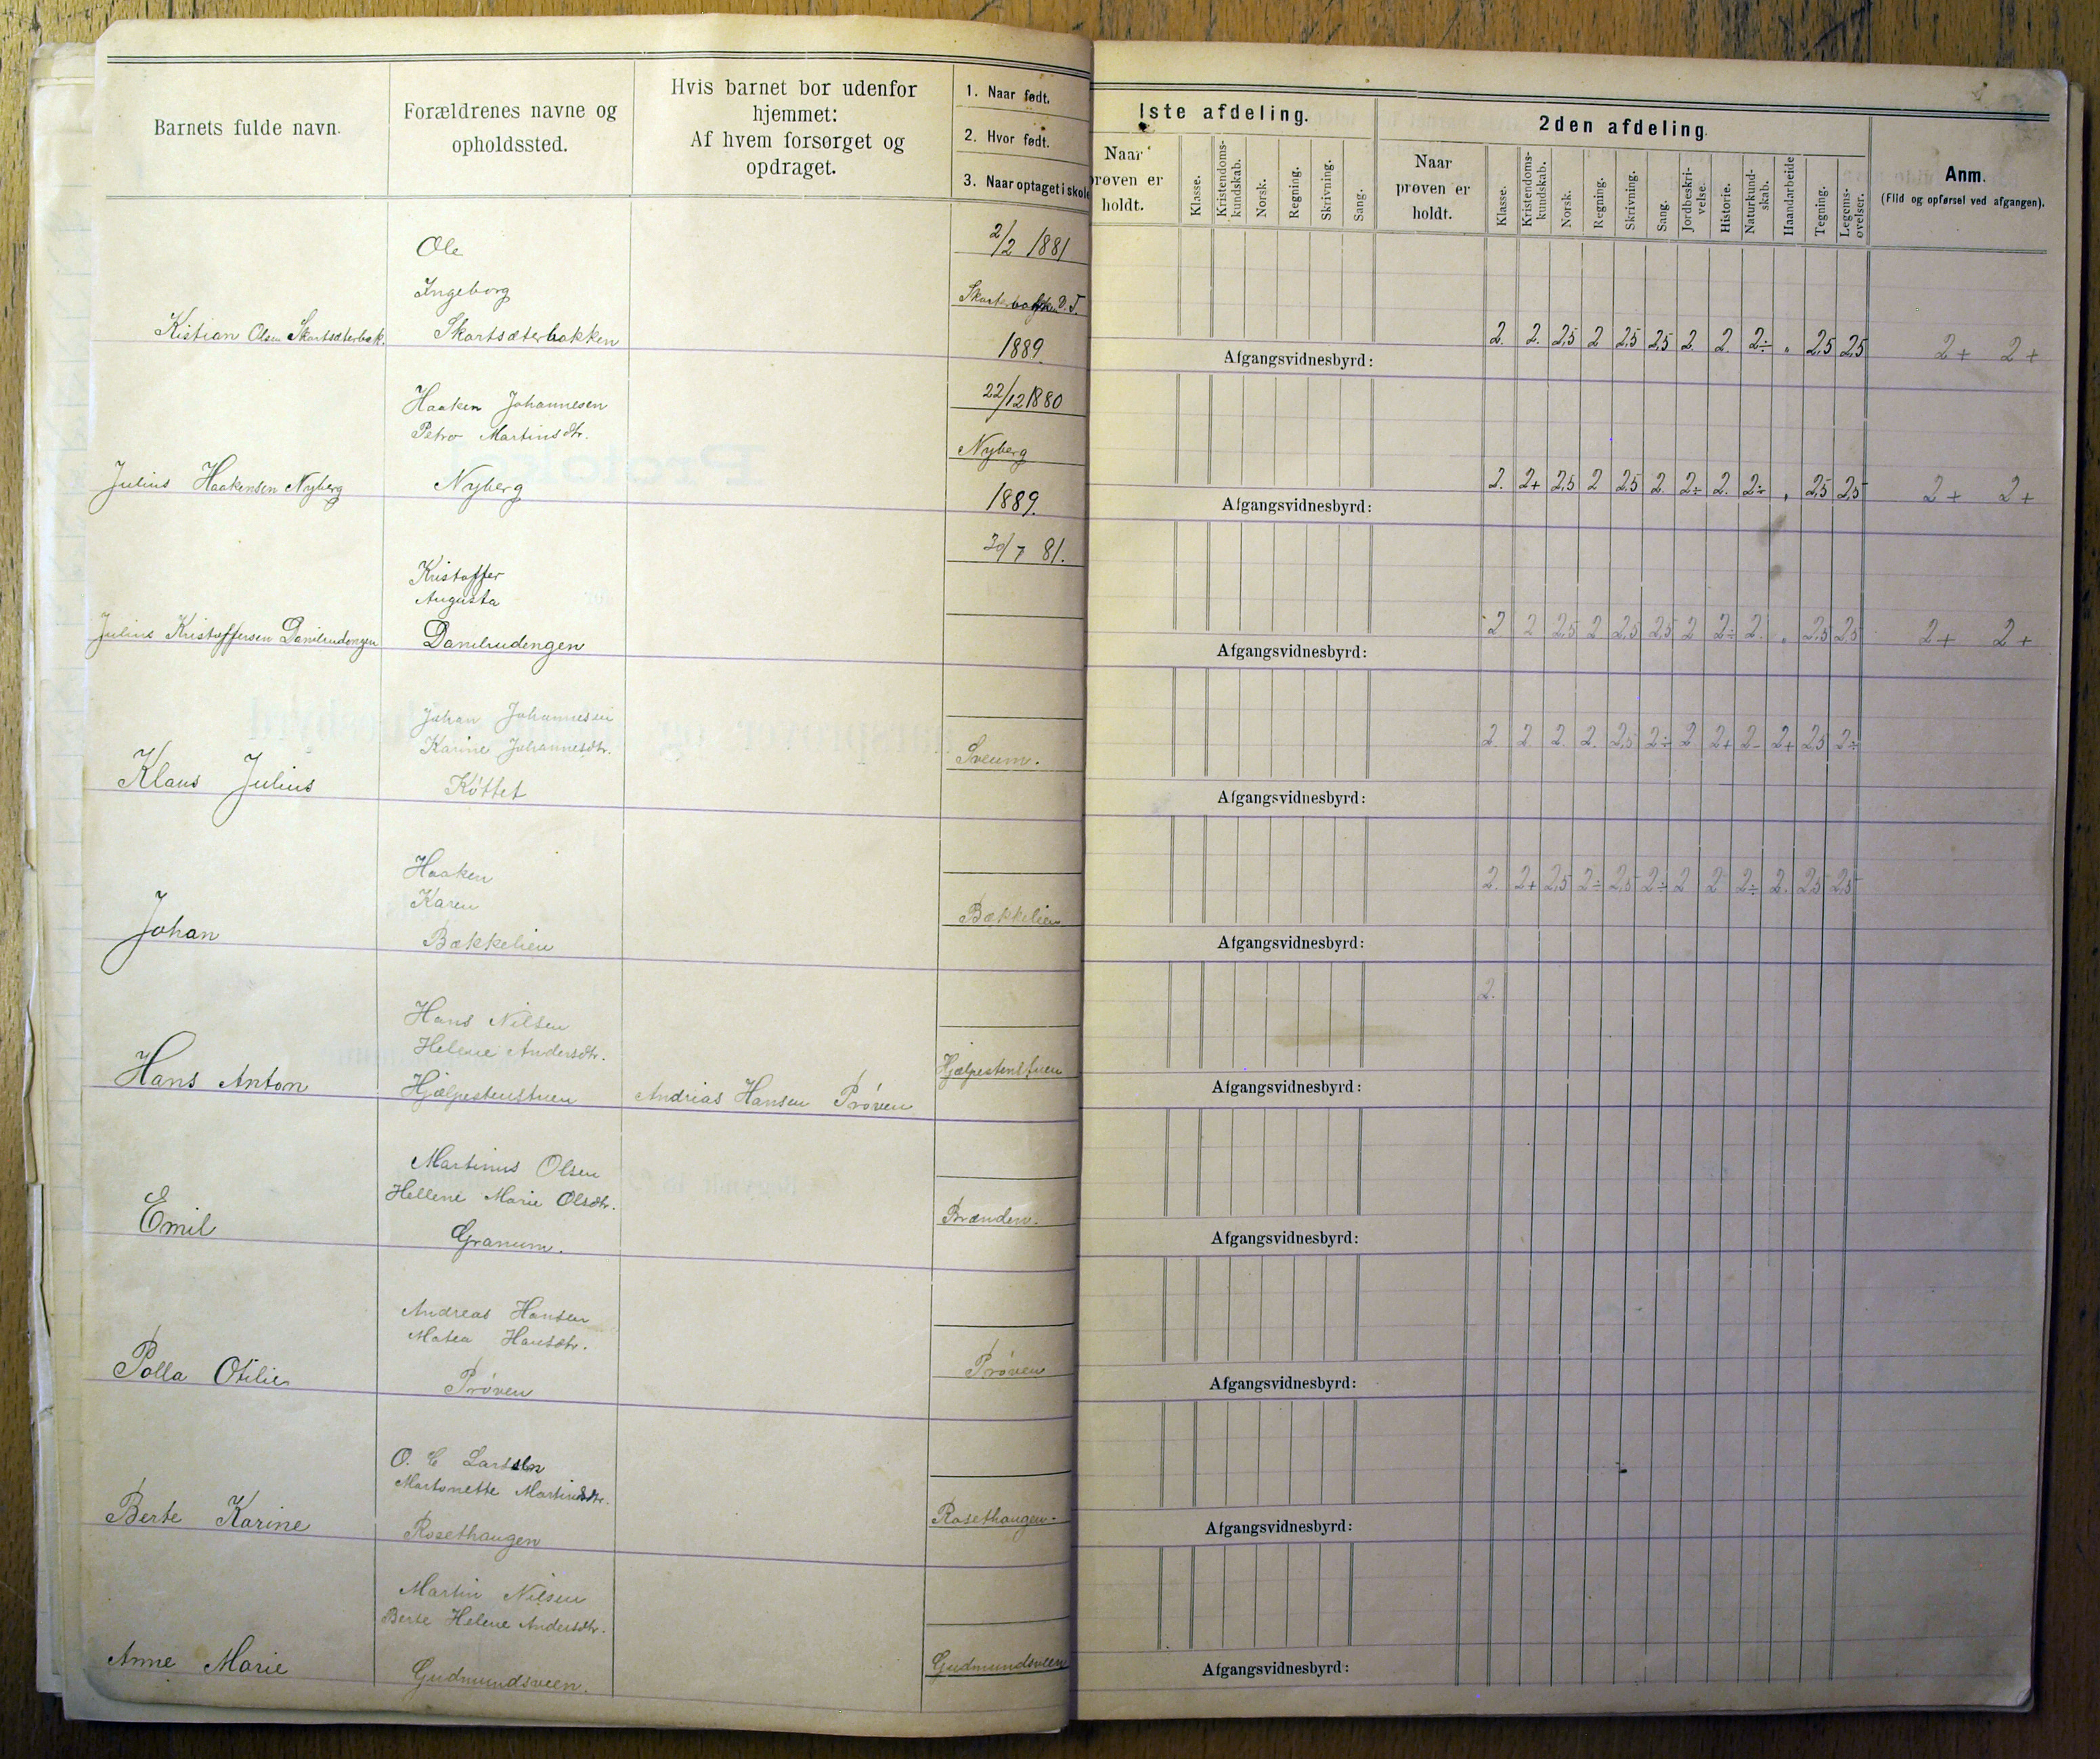 Barnets fulde navn.
Forældrenes navne og
opholdssted.
Hvis barnet bor udenfor
hjemmet:
Af hvem forsørget og
opdraget.
1. Naar født.
2. Hvor født.
3. Naar optaget i skole
1ste afdeling.
Naar
prøven er
holdt.
Klasse.
Kristendoms-
kundskab.
Norsk.
Regning.
Skrivning.
Sang.
2den afdeling.
Naar
prøven er
holdt.
Klasse.
Kristendoms-
kundskab.
Norsk.
Regning.
Skrivning.
Sang.
Jordbeskri-
velse.
Historie.
Naturkund-
skab.
Haandarbeide
Tegning.
Legems-
øvelser.
Anm.
(Flid og opførsel ved afgangen).
Ole
Ingeborg
Kistian Olsen Skartsæterbak.
Skartsæterbakken
2/2 1881
1889
2. 2. 2,5 2 2,5 2,5 2 2. 2÷ „ 2,5 2,5 2+ 2+
Afgangsvidnesbyrd:
Haaken Johannesen
Petro Martinsdtr.
Julius Haakensen Nyberg
Nyberg
22/12 1880
Nyberg
1889.
2. 2+ 2,5 2 2,5 2. 2÷ 2. 2÷ „ 2,5 2,5 2+ 2+
Afgangsvidnesbyrd:
Kristoffer
Augusta
Julius Kristoffersen Danilrudengen
Danilrudengen
81.
2 2 2,5 2 2,5 2,5 2 2÷ 2. „ 2,5 2,5 2+ 2+
Afgangsvidnesbyrd:
Johan Johannesen
Karine Johannesdtr.
Klaus Julius
Køttet
Sveum.
2. 2. 2. 2. 2,5 2÷ 2 2+ 2- 2+ 2,5 2÷
Afgangsvidnesbyrd:
Haaken
Karen
Johan
Bækkelien
Bækkelien
2. 2+ 2,5 2÷ 2,5 2÷ 2 2 2÷ 2. 2,5 2,5
Afgangsvidnesbyrd:
Hans Nilsen
Helene Andersdtr.
Hans Anton
Hjælpestenstuen
Andrias Hansen Prøven
Hjælpestenstuen
2.
Afgangsvidnesbyrd:
Martinus Olsen
Hellene Marie Olsdtr.
Emil
Granum.
Brænden.
Afgangsvidnesbyrd:
Andreas Hansen
Matea Hansdtr.
Palla Otilie
Prøven
Prøven
Afgangsvidnesbyrd:
O. C Larssen
Martonette Martinsdtr.
Berte Karine
Rosethaugen
Rosethaugen.
Afgangsvidnesbyrd:
Martin Nilsen
Berte Helene Andersdtr.
Anne Marie
Gudmundsveen.
Gudmundsveen
Afgangsvidnesbyrd: